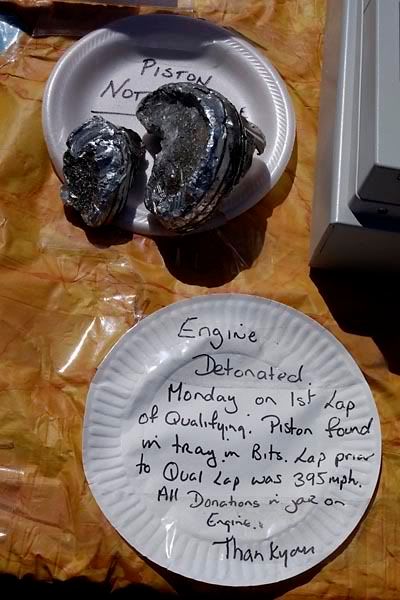 PISTON
NOT
Engine
Detonated.
Monday on 1st Lap
of Qualifying. Piston found
in tray in Bits. Lap prior
to Qual Lap was 395mph.
All Donations in jar on
Engine.
Thankyou